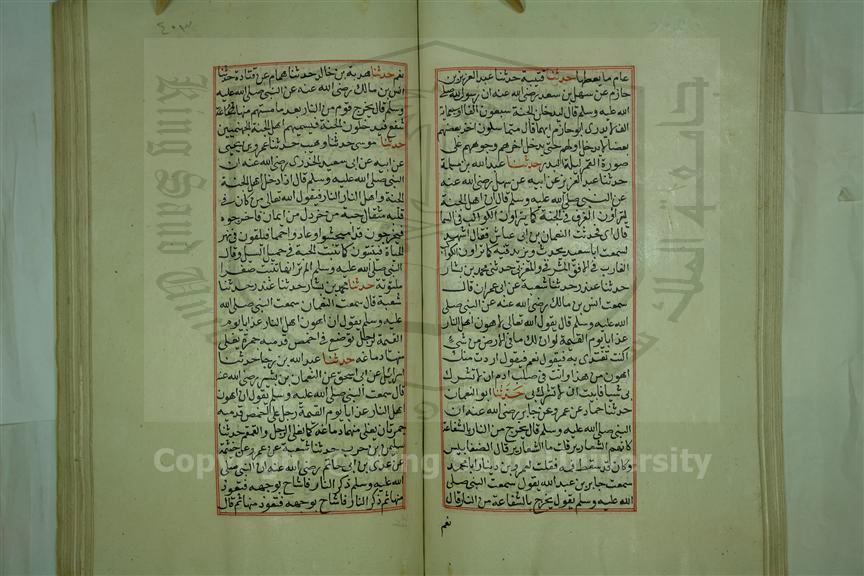 عام ما يعطها حدثنا قتيبة حدثنا عبد العزيز بن
حازم عن سهل بن سعد رضى الله عنه ان رسول الله صلى
الله عليه وسلم قال ليدخلن الجنة سبعون الفا او سبعمائة
الف لا يدرى ابو حازم ايهما قال متماسكون اخذ بعضهم
بعضا لا يدخل اولهم حتى يدخل اخرهم وجوههم على
صورة القمر ليلة البدر حدثنا عبد الله بن مسلمة
حدثنا عبد العزيز عن ابيه عن سهل رضى الله عنه
عن النبى صلى الله عليه وسلم قال ان اهل الجنة
ليتراؤن الغرف فى الجنة كما يتراؤن الكوكب فى السما
قال ابى فحدثت النعمان بن ابى عياش فقال اشهد
لسمعت ابا سعيد يحدث ويزيد فيه كما تراؤن الكوكب
الغارب فى الافق الشرقى والغربى حدثنى محمد بن بشار
حدثنا غندر حدثنا شعبة عن ابى عمران قال
سمعت انس بن مالك رضى الله عنه عن النبى صلى
الله عليه وسلم قال يقول الله تعالى لاهون اهل النار
عذابا يوم القيمة لو ان لك ما فى الارض من شىء
اكنت تفتدى به فيقول نعم فيقول اردت منك
اهون من هذا وانت فى صلب ادم ان لا تشرك
بى شيئا فابيت الا ان تشرك بى حدثنا ابو النعمان
حدثنا حماد عن عمرو عن جابر رضى الله عنه ان
النبى صلى الله عليه وسلم قال يخرج من النار بالشفاعة
كانهم الثعارير قلت ما الثعارير قال الضغابيس
وكان قد سقط فمه فقلت لعمرو بن دينار ابا محمد
سمعت جابر بن عبد الله يقول سمعت النبى صلى
الله عليه وسلم يقول يخرج بالشفاعة من النار قال
نعم
٤٠٣
نعم حدثنا هدبة بن خالد حدثنا همام عن قتادة حدثنا
انس بن مالك رضى الله عنه عن النبى صلى الله عليه
وسلم قال يخرج قوم من النار بعد ما مسهم منها
سفع فيدخلون الجنة فيسميهم اهل الجنة الجهنميين
حدثنا موسى حدثنا وهيب حدثنا عمرو بن يحيى
عن ابيه عن ابى سعيد الخدرى رضى الله عنه ان
النبى صلى الله عليه وسلم قال اذا دخل اهل الجنة
الجنة واهل النار النار فيقول الله تعالى من كان فى
قلبه مثقال حبة من خردل من ايمان فاخرجوه
فيخرجون قد امتحشوا وعادوا حمما فيلقون فى نهر
الحياة فينبتون كما تنبت الحبة فى حميل السيل وقال
النبى صلى الله عليه وسلم الم تر انها تنبت صفرا
ملتوية حدثنا محمد بن بشار حدثنا غندر حدثنا
شعبة قال سمعت النعمان سمعت النبى صلى الله
عليه وسلم يقول ان اهون اهل النار عذابا يوم
القيمة لرجل توضع فى اخمص قدميه جمرة يغلى
منها دماغه حدثنا عبد الله بن رجا حدثنا
اسرائيل عن ابى اسحق عن النعمان بن بشير رضى الله عنه
قال سمعت النبى صلى الله عليه وسلم يقول ان اهون
اهل النار عذابا يوم القيمة رجل على اخمص قدميه
جمرتان يغلى منهما دماغه كما يغلى المرجل والقمقم حدثنا
سليمن بن حرب حدثنا شعبة عن عمرو عن خيثمة
عن عدى بن ابى حاتم رضى الله عنه ان النبى صلى
الله عليه وسلم ذكر النار فاشاح بوجهه فتعوذ
منها ثم ذكر النار فاشاح بوجهه فتعوذ منها ثم قال
King Saud University
جامعة الملك سعود
Copyright © King Saud University